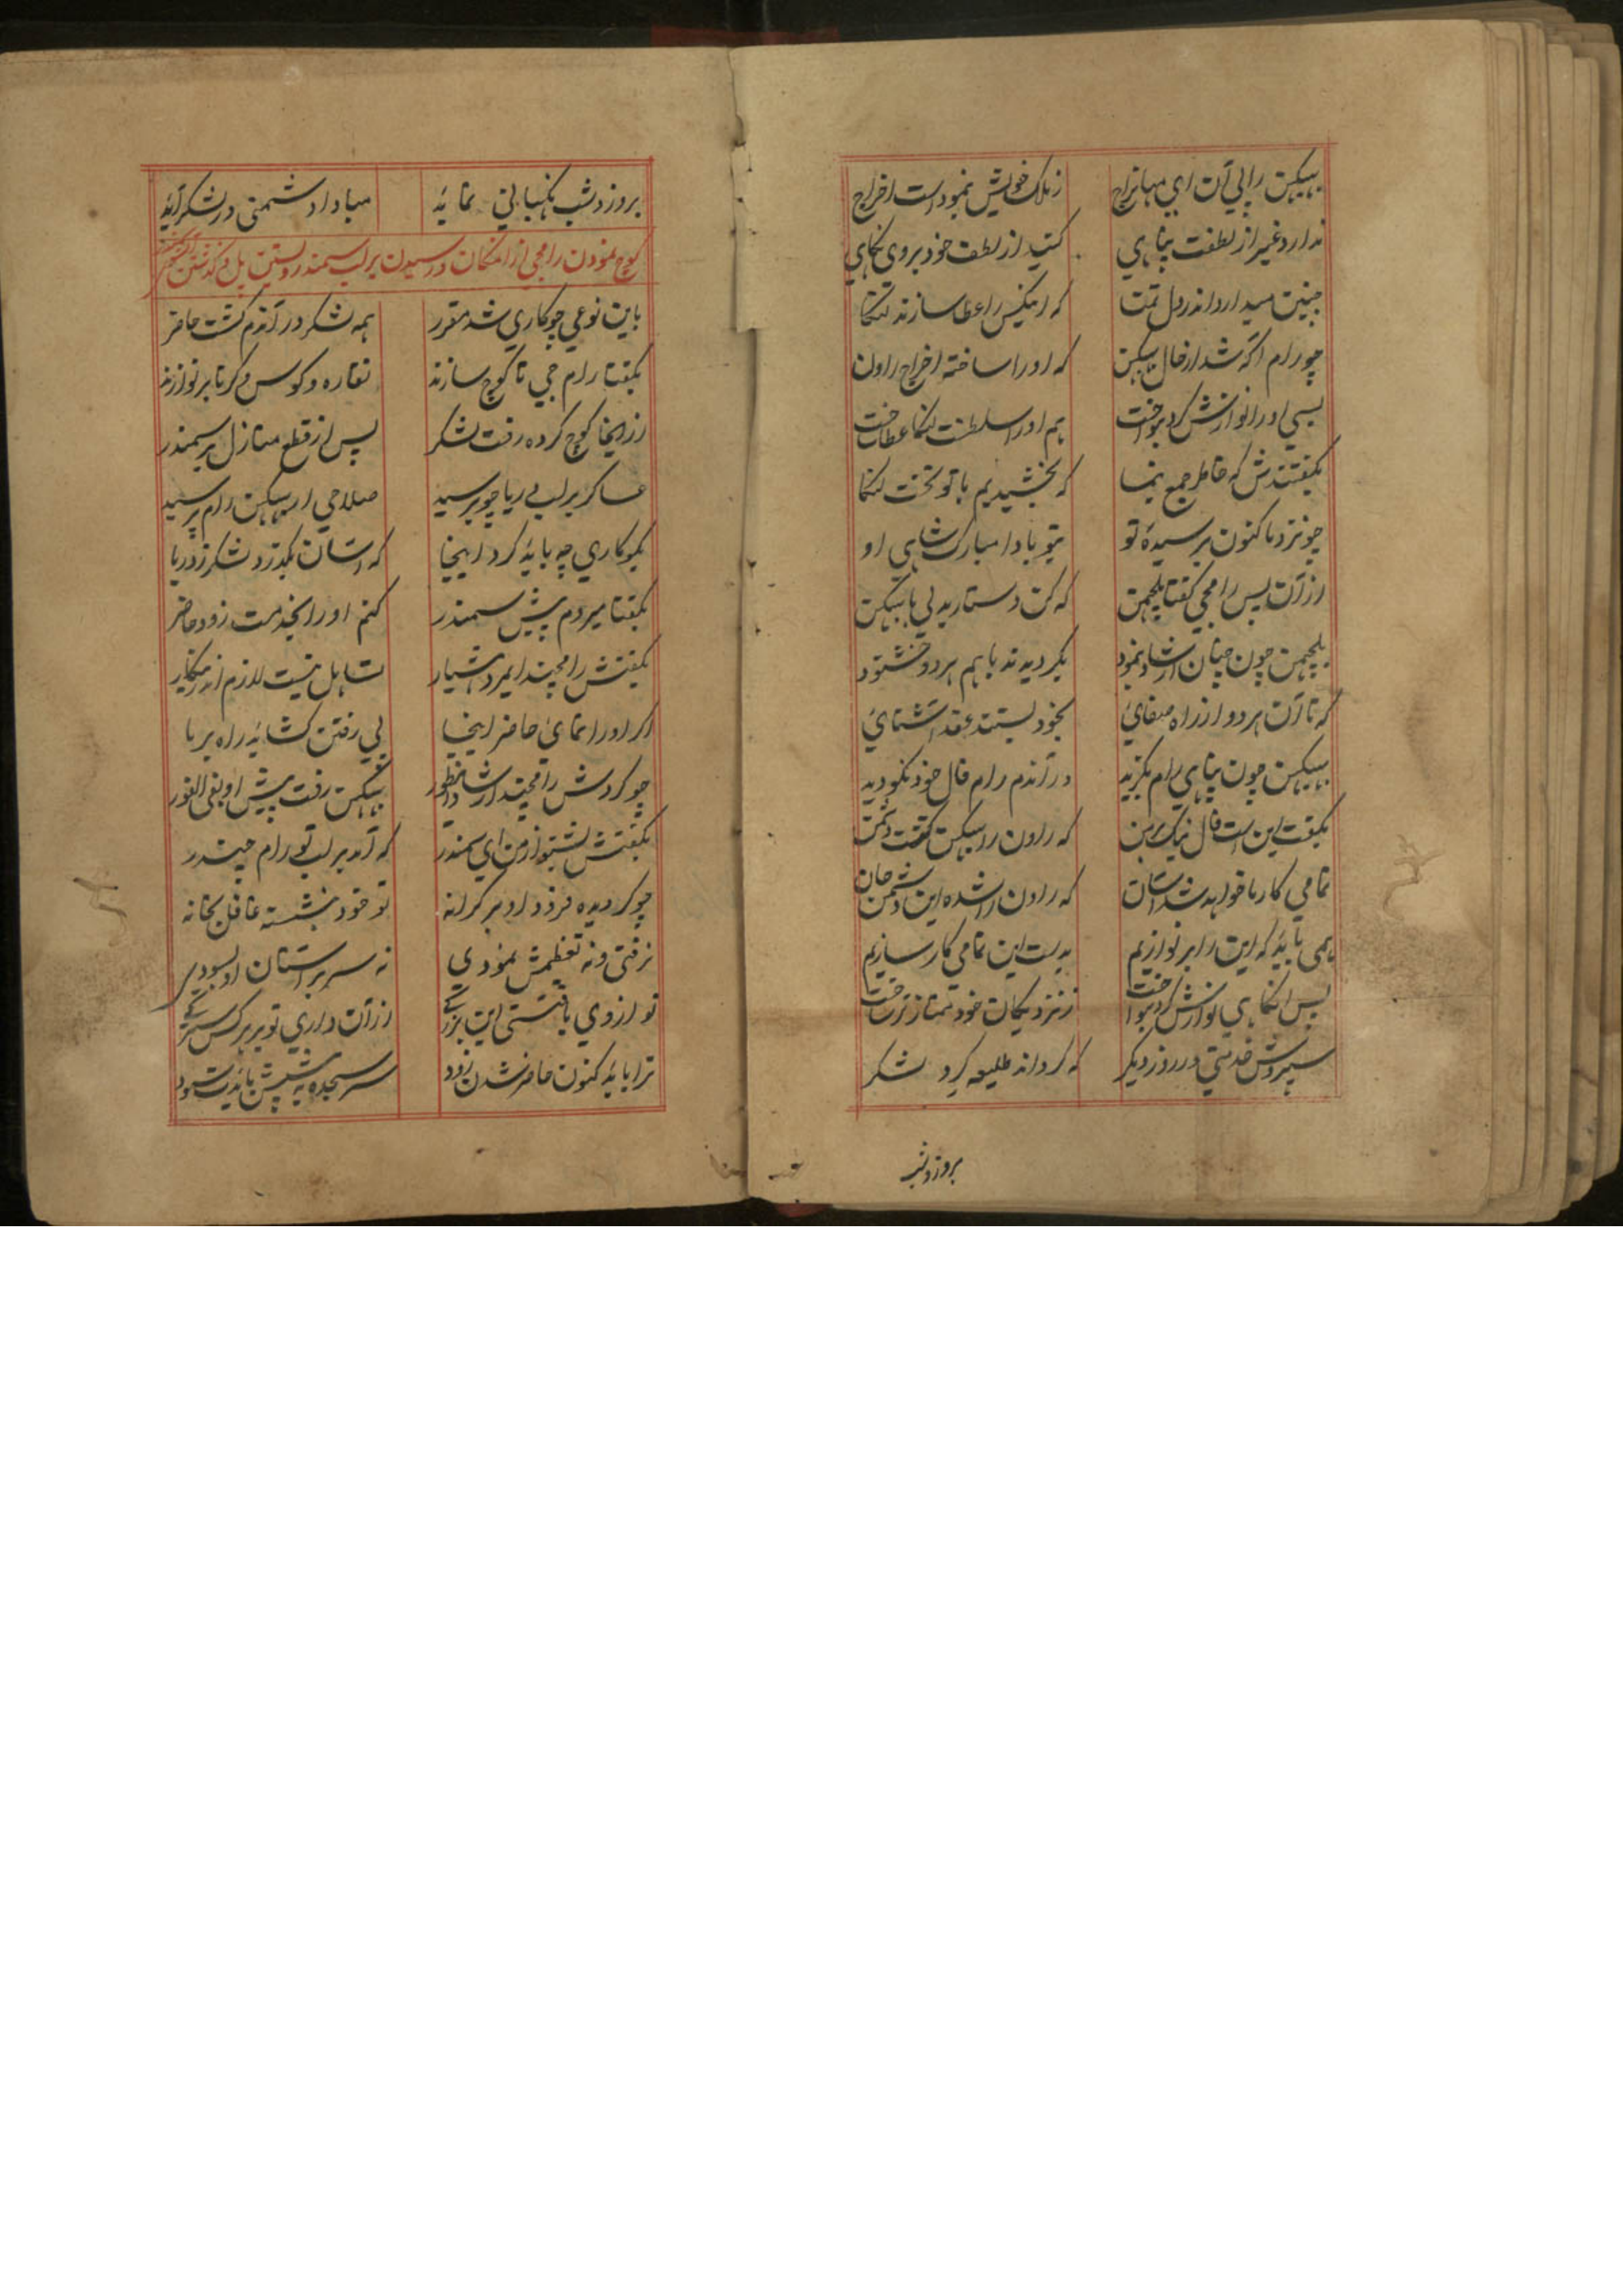 ببیکن را پی آن ای مهاراج ز ملک خویش نمودست اخراج
ندارد غیر از لطفت پناهی کنید از لطف خود بروی نگاهی
چنین میدارد اندر دل تمنا که این کس را عطا سازند لنکا
چو رام آگه شد از حال ببیکن که او را ساخته اخراج راون
بسی او را نوازش کرد بنواخت هم او را سلطنت لنکا عطا ساخت
بگفتندش که خاطر جمع بنما که بخشیدیم با تو تخت لنکا
چو نزد ما کنون برسیدهٔ تو بتو بادا مبارک شاهی او
از آن پس رامجی گفتا بلچمن که کن دستار بدلی با ببیکن
بلچمن چون چنان ارشاد بنمود بگردیدند باهم هر دو خشنود
که تا آن هر دو از راه صفائی بخود بستند عقد آشنائی
ببیکن چون پناهی رام بگزید در آندم رام فال خود نکو دید
بگفت این است فال نیک بر من که راون را ببیکن گشت دشمن
تمامی کار ما خواهد شد آسان که راون را شده این دشمن جان
همی باید که این را بر نوازیم بدست این تمامی کار سازیم
پس آنگاهی نوازش کرد بنواخت ز نزدیکان خود ممتاز تر ساخت
سپردش خدمتی در روز دیگر که گرداند طلیعه گرد لشکر
بروز و شب
بروز و شب نگهبانی نماید مبادا دشمنی در لشکر آید
کوچ نمودن رامجی از آنمکان و رسیدن بر لب سمندر و بستن پل و گذشتن لشکر
باین نوعی چو کاری شد مقرر همه لشکر در آندم گشت حاضر
بگفتا رام جی تا کوچ سازند نقاره و کوس و کرنا بر نوازند
از اینجا کوچ کرده رفت لشکر پس از قطع منازل بر سمندر
عساکر بر لب دریا چو برسید صلاحی از ببیکن رام پرسید
بگو کاری چه باید کرد اینجا که آسان بگذرد لشکر ز دریا
بگفتا میروم پیش سمندر کنم او را بخدمت زود حاضر
بگفتش رامچند ای مرد هشیار تساهل نیست لازم اندرینکار
گر او را نمائی حاضر اینجا پی رفتن گشاید راه بر ما
چو کردش رامچند ارشاد اینطور ببیکن رفت پیش او بفی الفور
بگفتش بشنو از من ای سمندر که آمد بر لب تو رام چندر
چو گردیده فرود او بر کرانه تو خود بنشسته غافل بخانه
نرفتی و نه تعظیمش نمودی نه سر بر آستان او بسودی
تو از وی یافتستی این بزرگی از آن داری تو بر هر کس سترگی
ترا باید کنون حاضر شدن زود سر سجده به پیشش بایدت سود